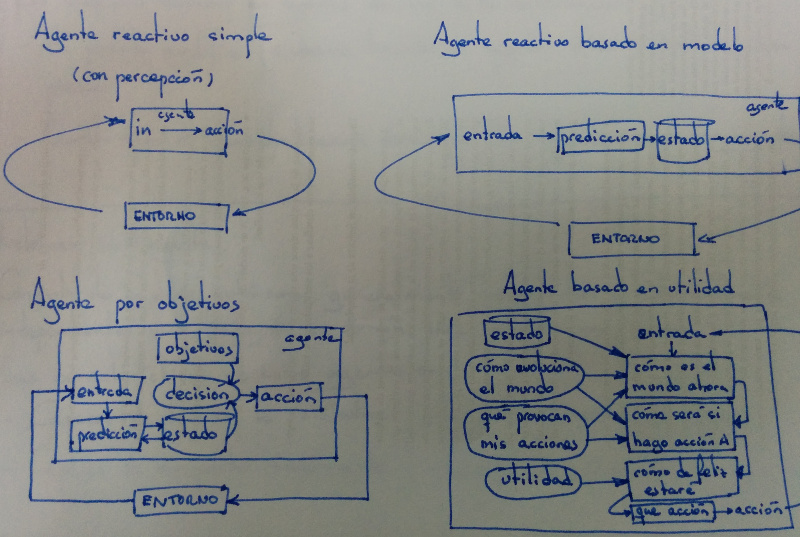 Agente reactivo simple
(con percepción)
agente
in acción
ENTORNO
Agente reactivo basado en modelo
agente
entrada predicción estado acción
ENTORNO
Agente por objetivos
agente
objetivos
entrada decision acción
predicción estado
ENTORNO
Agente basado en utilidad
estado entrada
cómo evoluciona
el mundo
cómo es el
mundo ahora
que provocan
mis acciones
cómo será si
hago acción A
utilidad
cómo de feliz
estaré
que acción acción